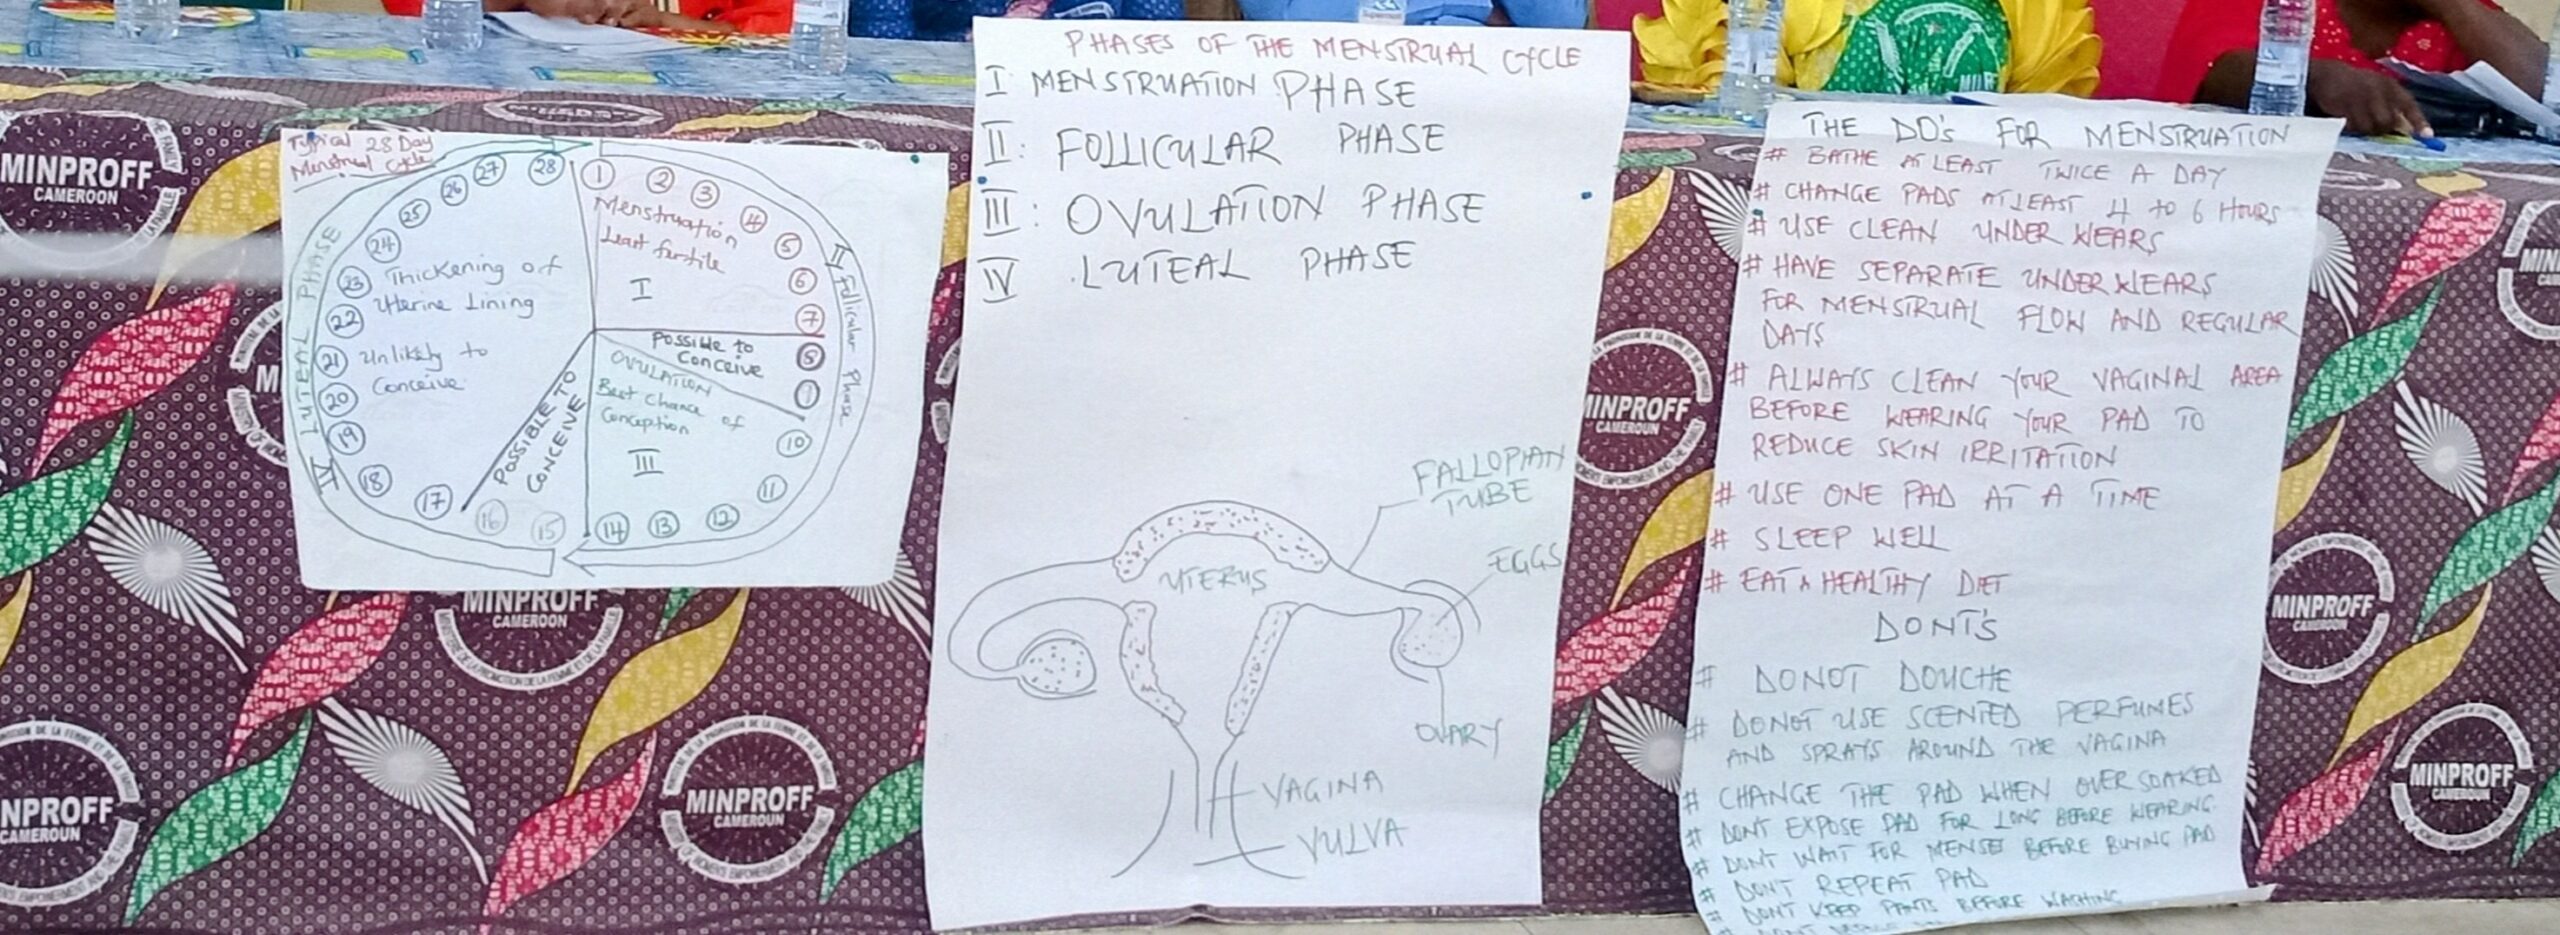 Typical 28 Day
Menstrual Cycle
1
2
3
4
5
6
7
8
10
11
12
13
14
15
16
17
18
19
20
21
22
23
24
25
26
27
28
Menstruation
Least fertile
I
II Follicular Phase
Possible to
Conceive
OVULATION
Best Chance of
Conception
III
POSSIBLE TO
CONCEIVE
Thickening of
Uterine Lining
Unlikely to
Conceive
IV LUTEAL PHASE
PHASES OF THE MENSTRUAL CYCLE
I: MENSTRUATION PHASE
II: FOLLICULAR PHASE
III: OVULATION PHASE
IV LUTEAL PHASE
FALLOPIAN
TUBE
EGGS
UTERUS
OVARY
VAGINA
VULVA
THE DO's FOR MENSTRUATION
# BATHE AT LEAST TWICE A DAY
# CHANGE PADS AT LEAST 4 to 6 HOURS
# USE CLEAN UNDER WEARS
# HAVE SEPARATE UNDER WEARS
FOR MENSTRUAL FLOW AND REGULAR
DAYS
# ALWAYS CLEAN YOUR VAGINAL AREA
BEFORE WEARING YOUR PAD TO
REDUCE SKIN IRRITATION
# USE ONE PAD AT A TIME
# SLEEP WELL
# EAT A HEALTHY DIET
DONT'S
# DO NOT DOUCHE
# DO NOT USE SCENTED PERFUMES
AND SPRAYS AROUND THE VAGINA
# CHANGE THE PAD WHEN OVER SOAKED
# DONT EXPOSE PAD FOR LONG BEFORE WEARING
# DONT WAIT FOR MENSES BEFORE BUYING PAD
# DONT REPEAT PAD
# DONT KEEP PANTS BEFORE WASHING
# DONT
MINPROFF
CAMEROON
MINPROFF
CAMEROON
MINPROFF
CAMEROUN
MINPROFF
CAMEROUN
MINPROFF
CAMEROUN
MINPROFF
CAMEROUN